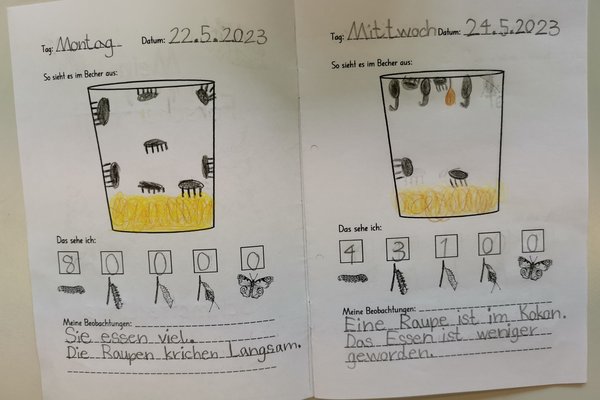 Tag: Montag Datum: 22.5.2023
So sieht es im Becher aus:
Das sehe ich:
8 0 0 0 0
Meine Beobachtungen:
Sie essen viel.
Die Raupen krichen Langsam.
Tag: Mittwoch Datum: 24.5.2023
So sieht es im Becher aus:
Das sehe ich:
4 3 1 0 0
Meine Beobachtungen:
Eine Raupe ist im Kokon.
Das Essen ist weniger
geworden.